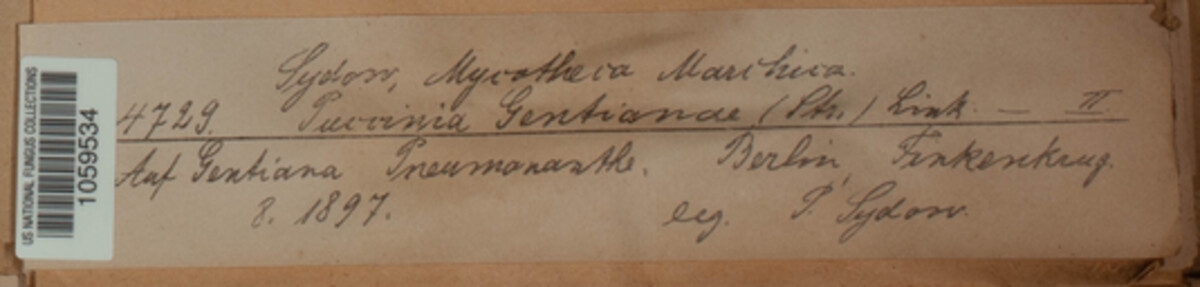 US NATIONAL FUNGUS COLLECTIONS
1059534
Sydow, Mycotheca Marchica.
4729. Puccinia Gentianae (Str.) Link. — II.
Auf Gentiana Pneumonanthe. Berlin, Finkenkrug.
8. 1897. leg. P. Sydow.